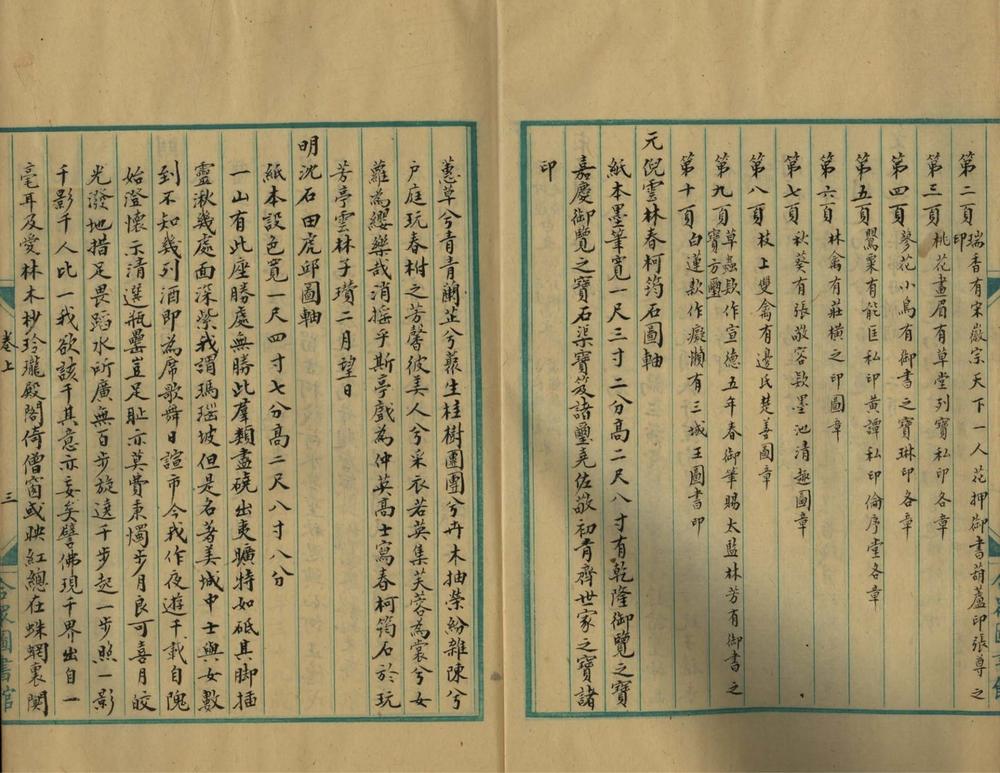 第二頁瑞香有宋徽宗天下一人花押御書葫蘆印張尊之
印
第三頁桃花畫眉有草堂列寶私印各章
第四頁蓼花小鳥有御書之寶琳印各章
第五頁鸎粟有能臣私印黃譚私印倫序堂各章
第六頁林禽有莊橫之印圖章
第七頁秋葵有張敬容欵墨池清趣圖章
第八頁枝上雙禽有邊氏楚善圖章
第九頁草蟲欵作宣德五年春御筆賜太監林芳有御書之
寶方璽
第十頁白蓮欵作癡懶有三城王圖書印
元倪雲林春柯筠石圖軸
紙本墨筆寬一尺三寸二分高二尺八寸有乾隆御覽之寶
嘉慶御覽之寶石渠寶笈諸璽堯佐敬初肯齊世家之寶諸
印
蕙草兮青青蘭芷兮藂生桂樹團團兮卉木抽榮紛雜陳兮
戶庭玩春柑之芳馨彼美人兮采衣若英集芙蓉為裳兮女
蘿為纓樂哉消搖乎斯亭戲為仲英高士寫春柯筠石於玩
芳亭雲林子瓚二月望日
明沈石田虎邱圖軸
紙本設色寬一尺四寸七分高二尺八寸八分
一山有此座勝處無勝此羣類盡磽出夷曠特如砥其脚插
靈湫幾處面深紫我謂瑪瑙坡但是名著美城中士與女數
到不知幾列酒即為席歌舞日諠市今我作夜遊千載自隗
始澄懷示清選瓶罍豈足耻亦莫費秉燭步月良可喜月皎
光潑地措足畏蹈水所廣無百步旋遶千步起一步照一影
千影千人比一我欲該千其意亦妄矣譬佛現千界出自一
毫耳及愛林木杪玲瓏殿閣倚僧窗或映紅總在蛛網裏関
卷上
三
合眾圖書館